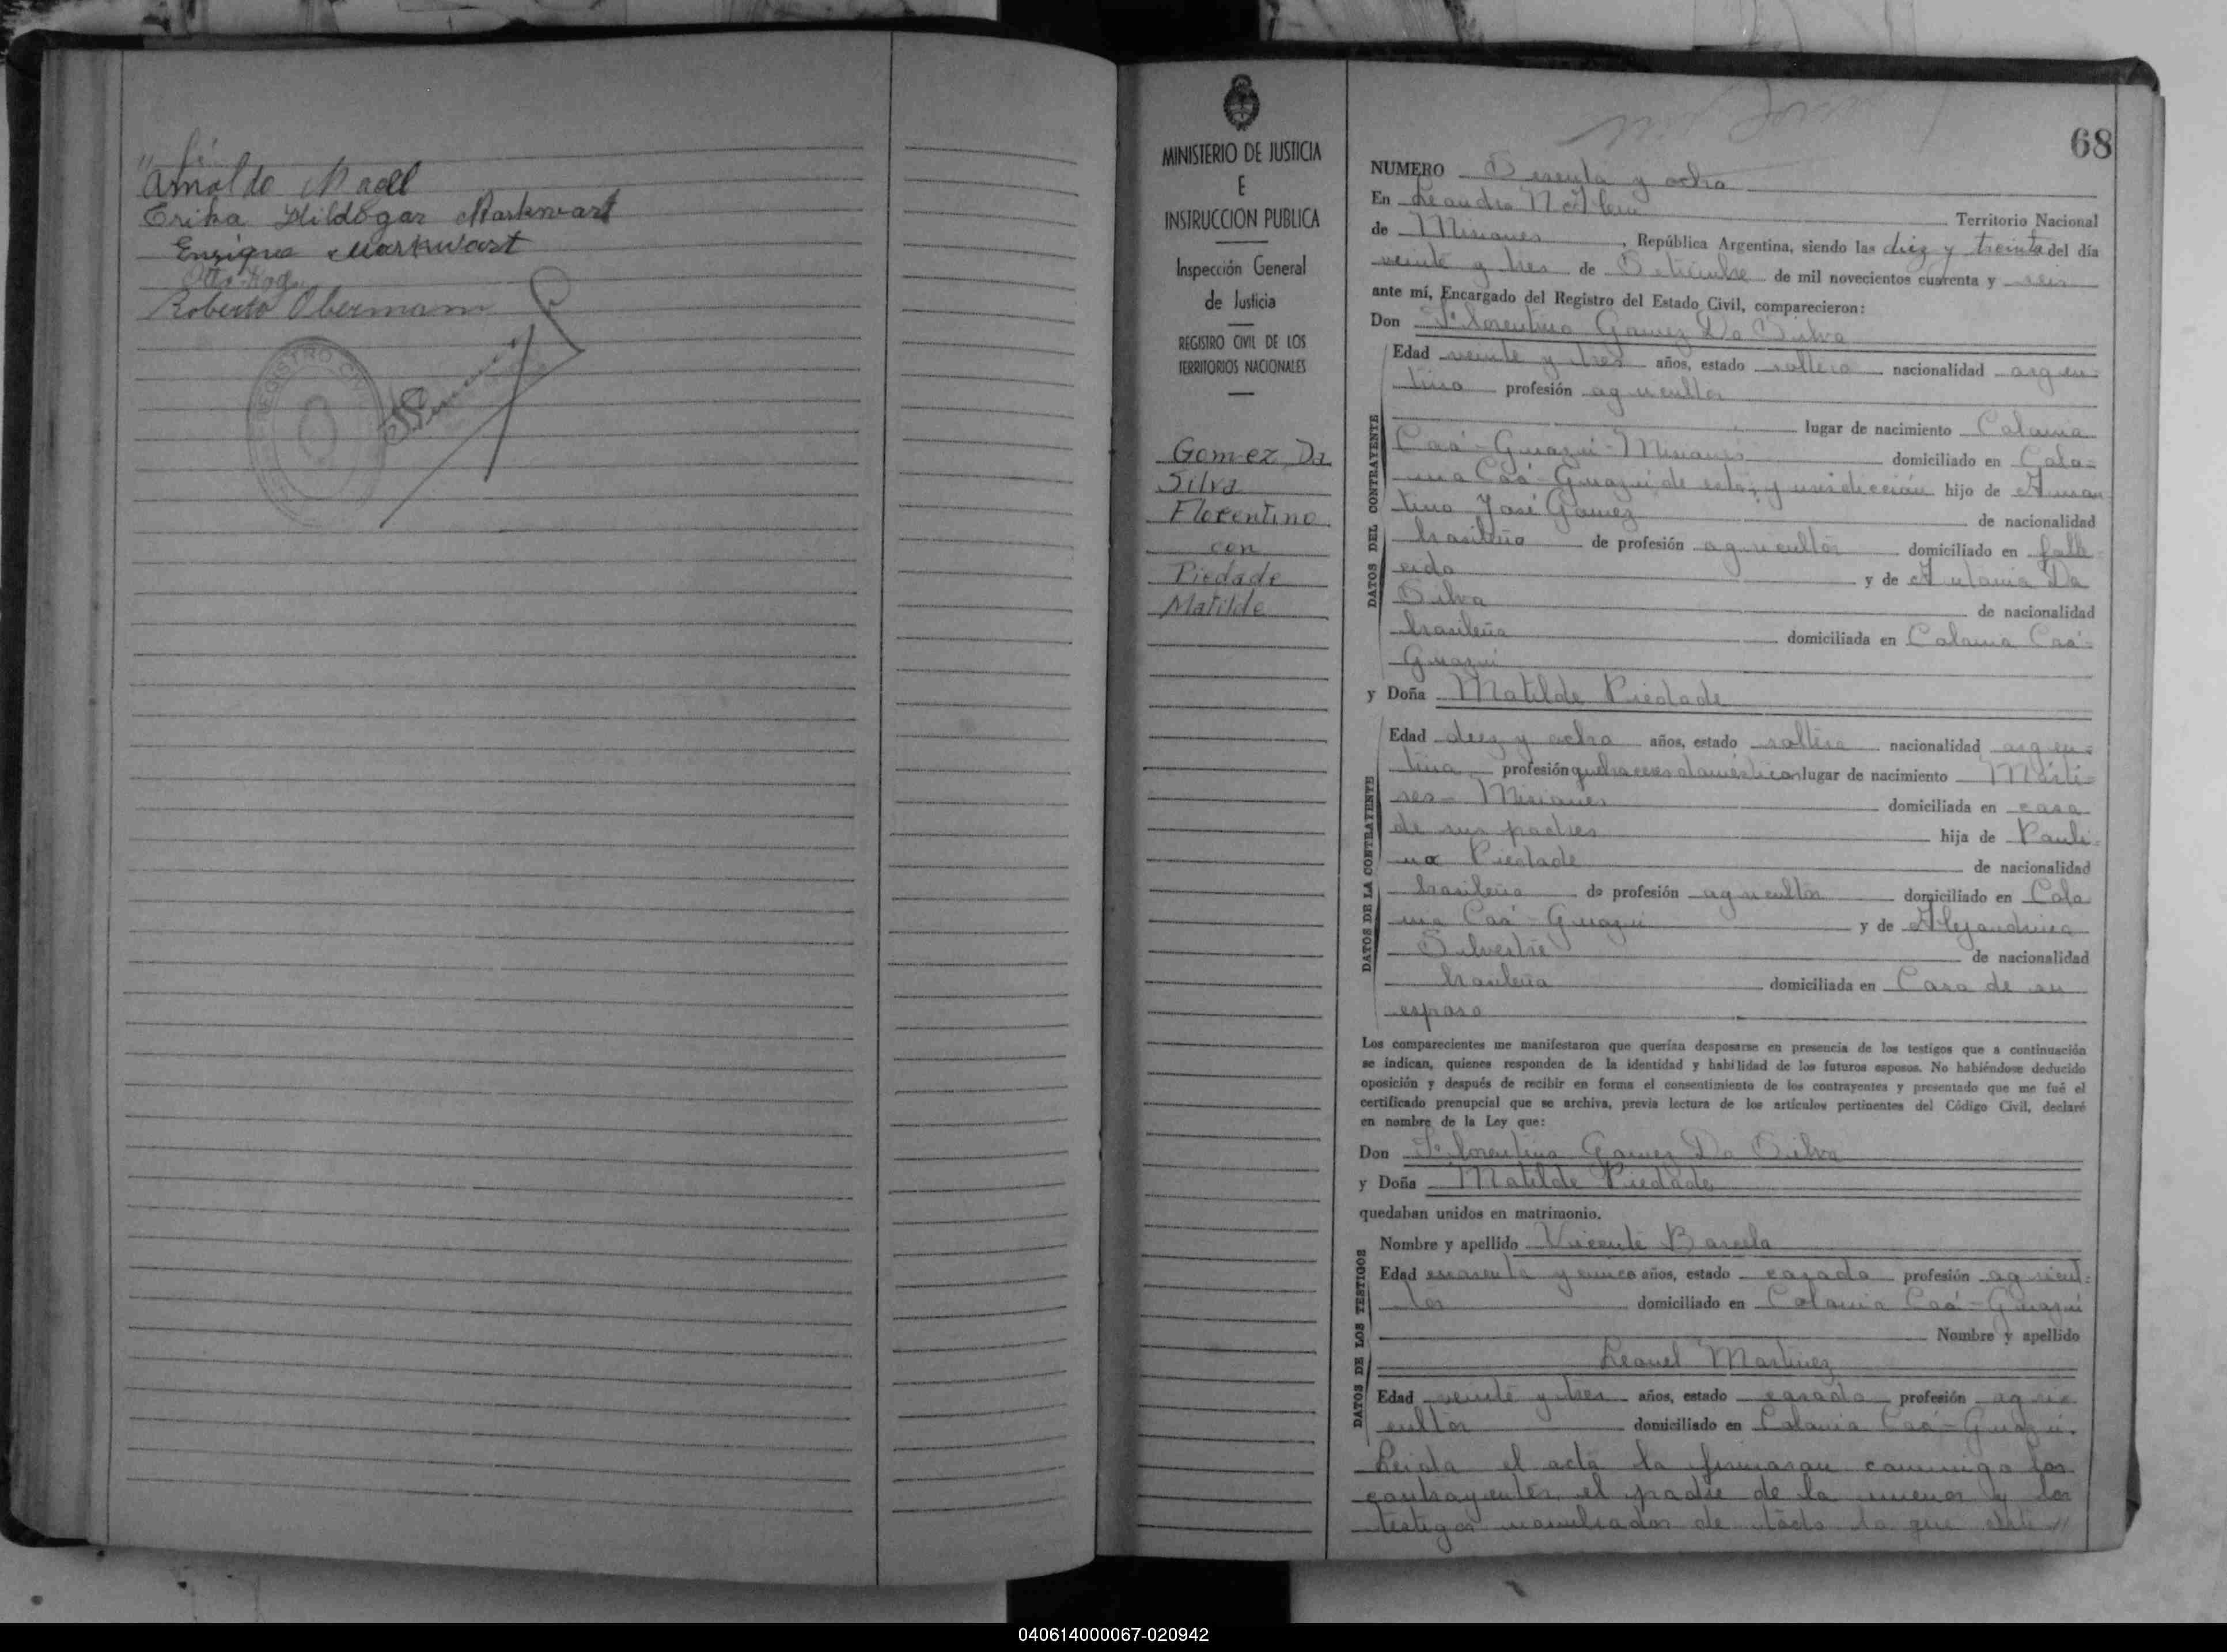 " fé.
Arnaldo Nagel
Erika Hildegar Markwart
Enrique Markwart
Otto Nagel
Roberto Obermann
REGISTRO CIVIL
68
MINISTERIO DE JUSTICIA
E
INSTRUCCION PUBLICA
Inspección General
de Justicia
REGISTRO CIVIL DE LOS
TERRITORIOS NACIONALES
Gomez Da
Silva
Florentino
con
Piedade
Matilde
NUMERO Sesenta y ocho
En Leandro N. Alem Territorio Nacional
de Misiones, República Argentina, siendo las diez y treinta del día
veinte y tres de Setiembre de mil novecientos cuarenta y seis
ante mí, Encargado del Registro del Estado Civil, comparecieron:
Don Florentino Gomez Da Silva
DATOS DEL CONTRAYENTE
Edad veinte y tres años, estado soltero nacionalidad argen-
tino profesión agricultor
lugar de nacimiento Colonia
Caá-Guazú-Misiones domiciliado en Colo-
nia Caá-Guazú de esta jurisdicción hijo de Aman
tino José Gomez de nacionalidad
brasileño de profesión agricultor domiciliado en falle
cido y de Antonia Da
Silva de nacionalidad
brasileña domiciliada en Colonia Caá-
Guazú
y Doña Matilde Piedade
DATOS DE LA CONTRAYENTE
Edad diez y ocho años, estado soltera nacionalidad argen-
tina profesión quehaceres domésticos lugar de nacimiento Márti-
res-Misiones domiciliada en casa
de sus padres hija de Pauli-
no Piedade de nacionalidad
brasileña de profesión agricultor domiciliado en Colo
nia Caá-Guazú y de Alejandrina
Silvestre de nacionalidad
brasileña domiciliada en Casa de su
esposo
Los comparecientes me manifestaron que querían desposarse en presencia de los testigos que a continuación
se indican, quienes responden de la identidad y habilidad de los futuros esposos. No habiéndose deducido
oposición y después de recibir en forma el consentimiento de los contrayentes y presentado que me fué el
certificado prenupcial que se archiva, previa lectura de los artículos pertinentes del Código Civil, declaré
en nombre de la Ley que:
Don Florentino Gomez Da Silva
y Doña Matilde Piedade
quedaban unidos en matrimonio.
DATOS DE LOS TESTIGOS
Nombre y apellido Vicente Barcela
Edad cuarenta y cinco años, estado casado profesión agricul-
tor domiciliado en Colonia Caá-Guazú
Nombre y apellido
Leonel Martinez
Edad veinte y tres años, estado casado profesión agri-
cultor domiciliado en Colonia Caá-Guazú.
Leida el acta la firmaron conmigo los
contrayentes, el padre de la menor y los
testigos nombrados de todo lo que
040614000067-020942